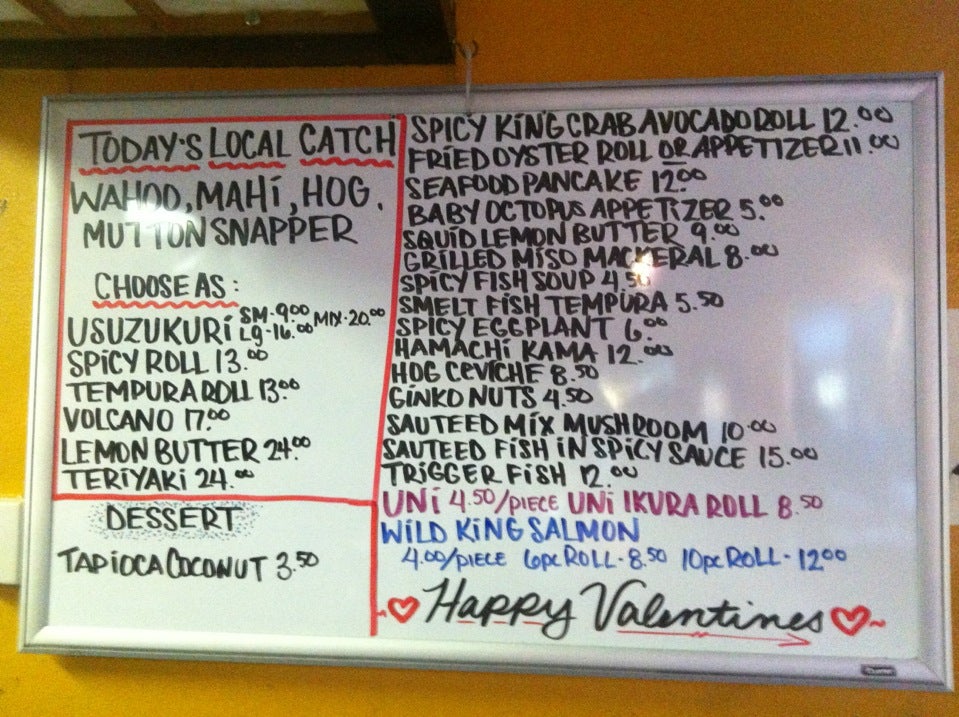 TODAY'S LOCAL CATCH
WAHOO, MAHI, HOG.
MUTTON SNAPPER
CHOOSE AS:
USUZUKURI SM-9.00 LG-16.00 MIX-20.00
SPICY ROLL 13.00
TEMPURA ROLL 13.00
VOLCANO 17.00
LEMON BUTTER 24.00
TERIYAKI 24.00
DESSERT
TAPIOCA COCONUT 3.50
SPICY KING CRAB AVOCADO ROLL 12.00
FRIED OYSTER ROLL OR APPETIZER 11.00
SEAFOOD PANCAKE 12.00
BABY OCTOPUS APPETIZER 5.00
SQUID LEMON BUTTER 9.00
GRILLED MISO MACKERAL 8.00
SPICY FISH SOUP 4.50
SMELT FISH TEMPURA 5.50
SPICY EGGPLANT 6.00
HAMACHI KAMA 12.00
HOG CEVICHE 8.50
GINKO NUTS 4.50
SAUTEED MIX MUSHROOM 10.00
SAUTEED FISH IN SPICY SAUCE 15.00
TRIGGER FISH 12.00
UNI 4.50/PIECE UNI IKURA ROLL 8.50
WILD KING SALMON
4.00/PIECE 6pc ROLL-8.50 10pc ROLL-12.00
Happy Valentines